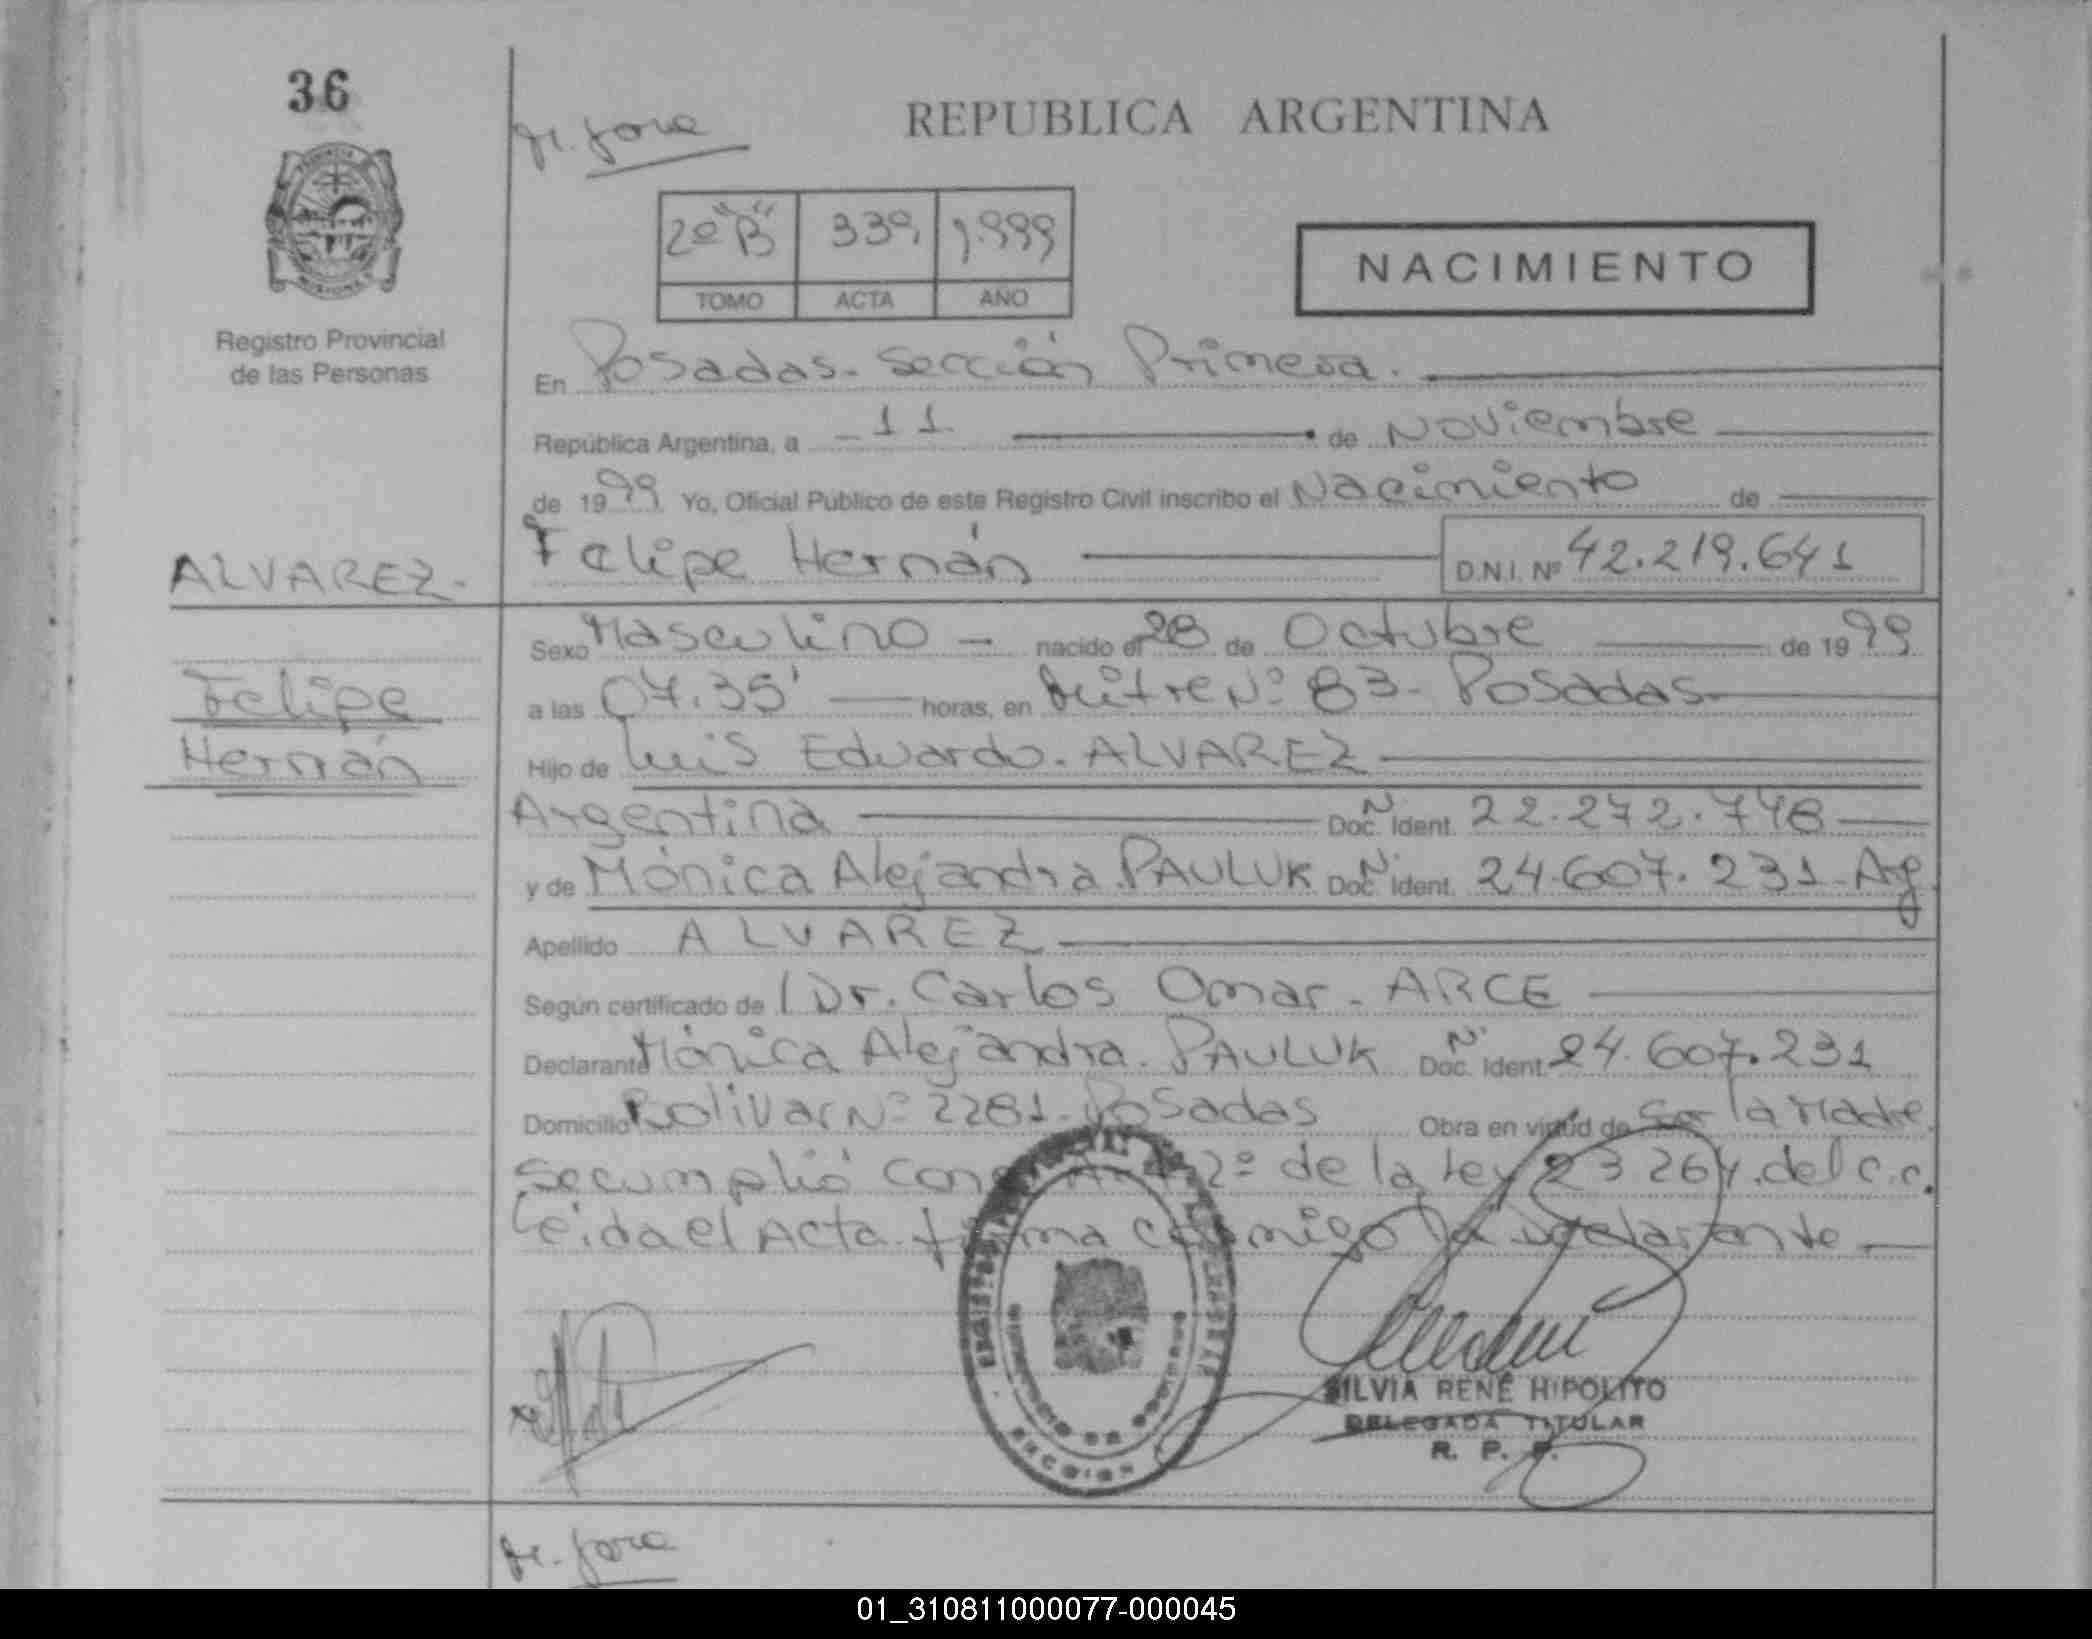 36
M. Jora
REPUBLICA ARGENTINA
2º "B" 339, 1.999
TOMO ACTA AÑO
NACIMIENTO
Registro Provincial
de las Personas
En Posadas. Sección Primera.
República Argentina, a 11 de Noviembre
de 1999 Yo, Oficial Público de este Registro Civil inscribo el Nacimiento de
ALVAREZ.
Felipe Hernán D.N.I. Nº 42.219.641
Sexo Masculino nacido el 28 de Octubre de 1999
Felipe
a las 07.35' horas, en Mitre Nº 83 - Posadas
Hernán
Hijo de Luis Eduardo. ALVAREZ
Argentina Doc. Nº Ident. 22.272.748
y de Mónica Alejandra PAULUK Doc. Nº Ident. 24.607.231 - Arg
Apellido ALVAREZ
Según certificado de l Dr. Carlos Omar - ARCE
Declarante Mónica Alejandra. PAULUK Doc. Nº Ident. 24.607.231
Domicilio Bolivar Nº 2281 - Posadas Obra en virtud de Ser la Madre
se cumplió con Art. 2º de la Ley 23264. del C.C.
Leida el Acta firma conmigo la declarante
SILVIA RENÉ HIPOLITO
DELEGADA TITULAR
R. P. P.
M. Jora
01_310811000077-000045